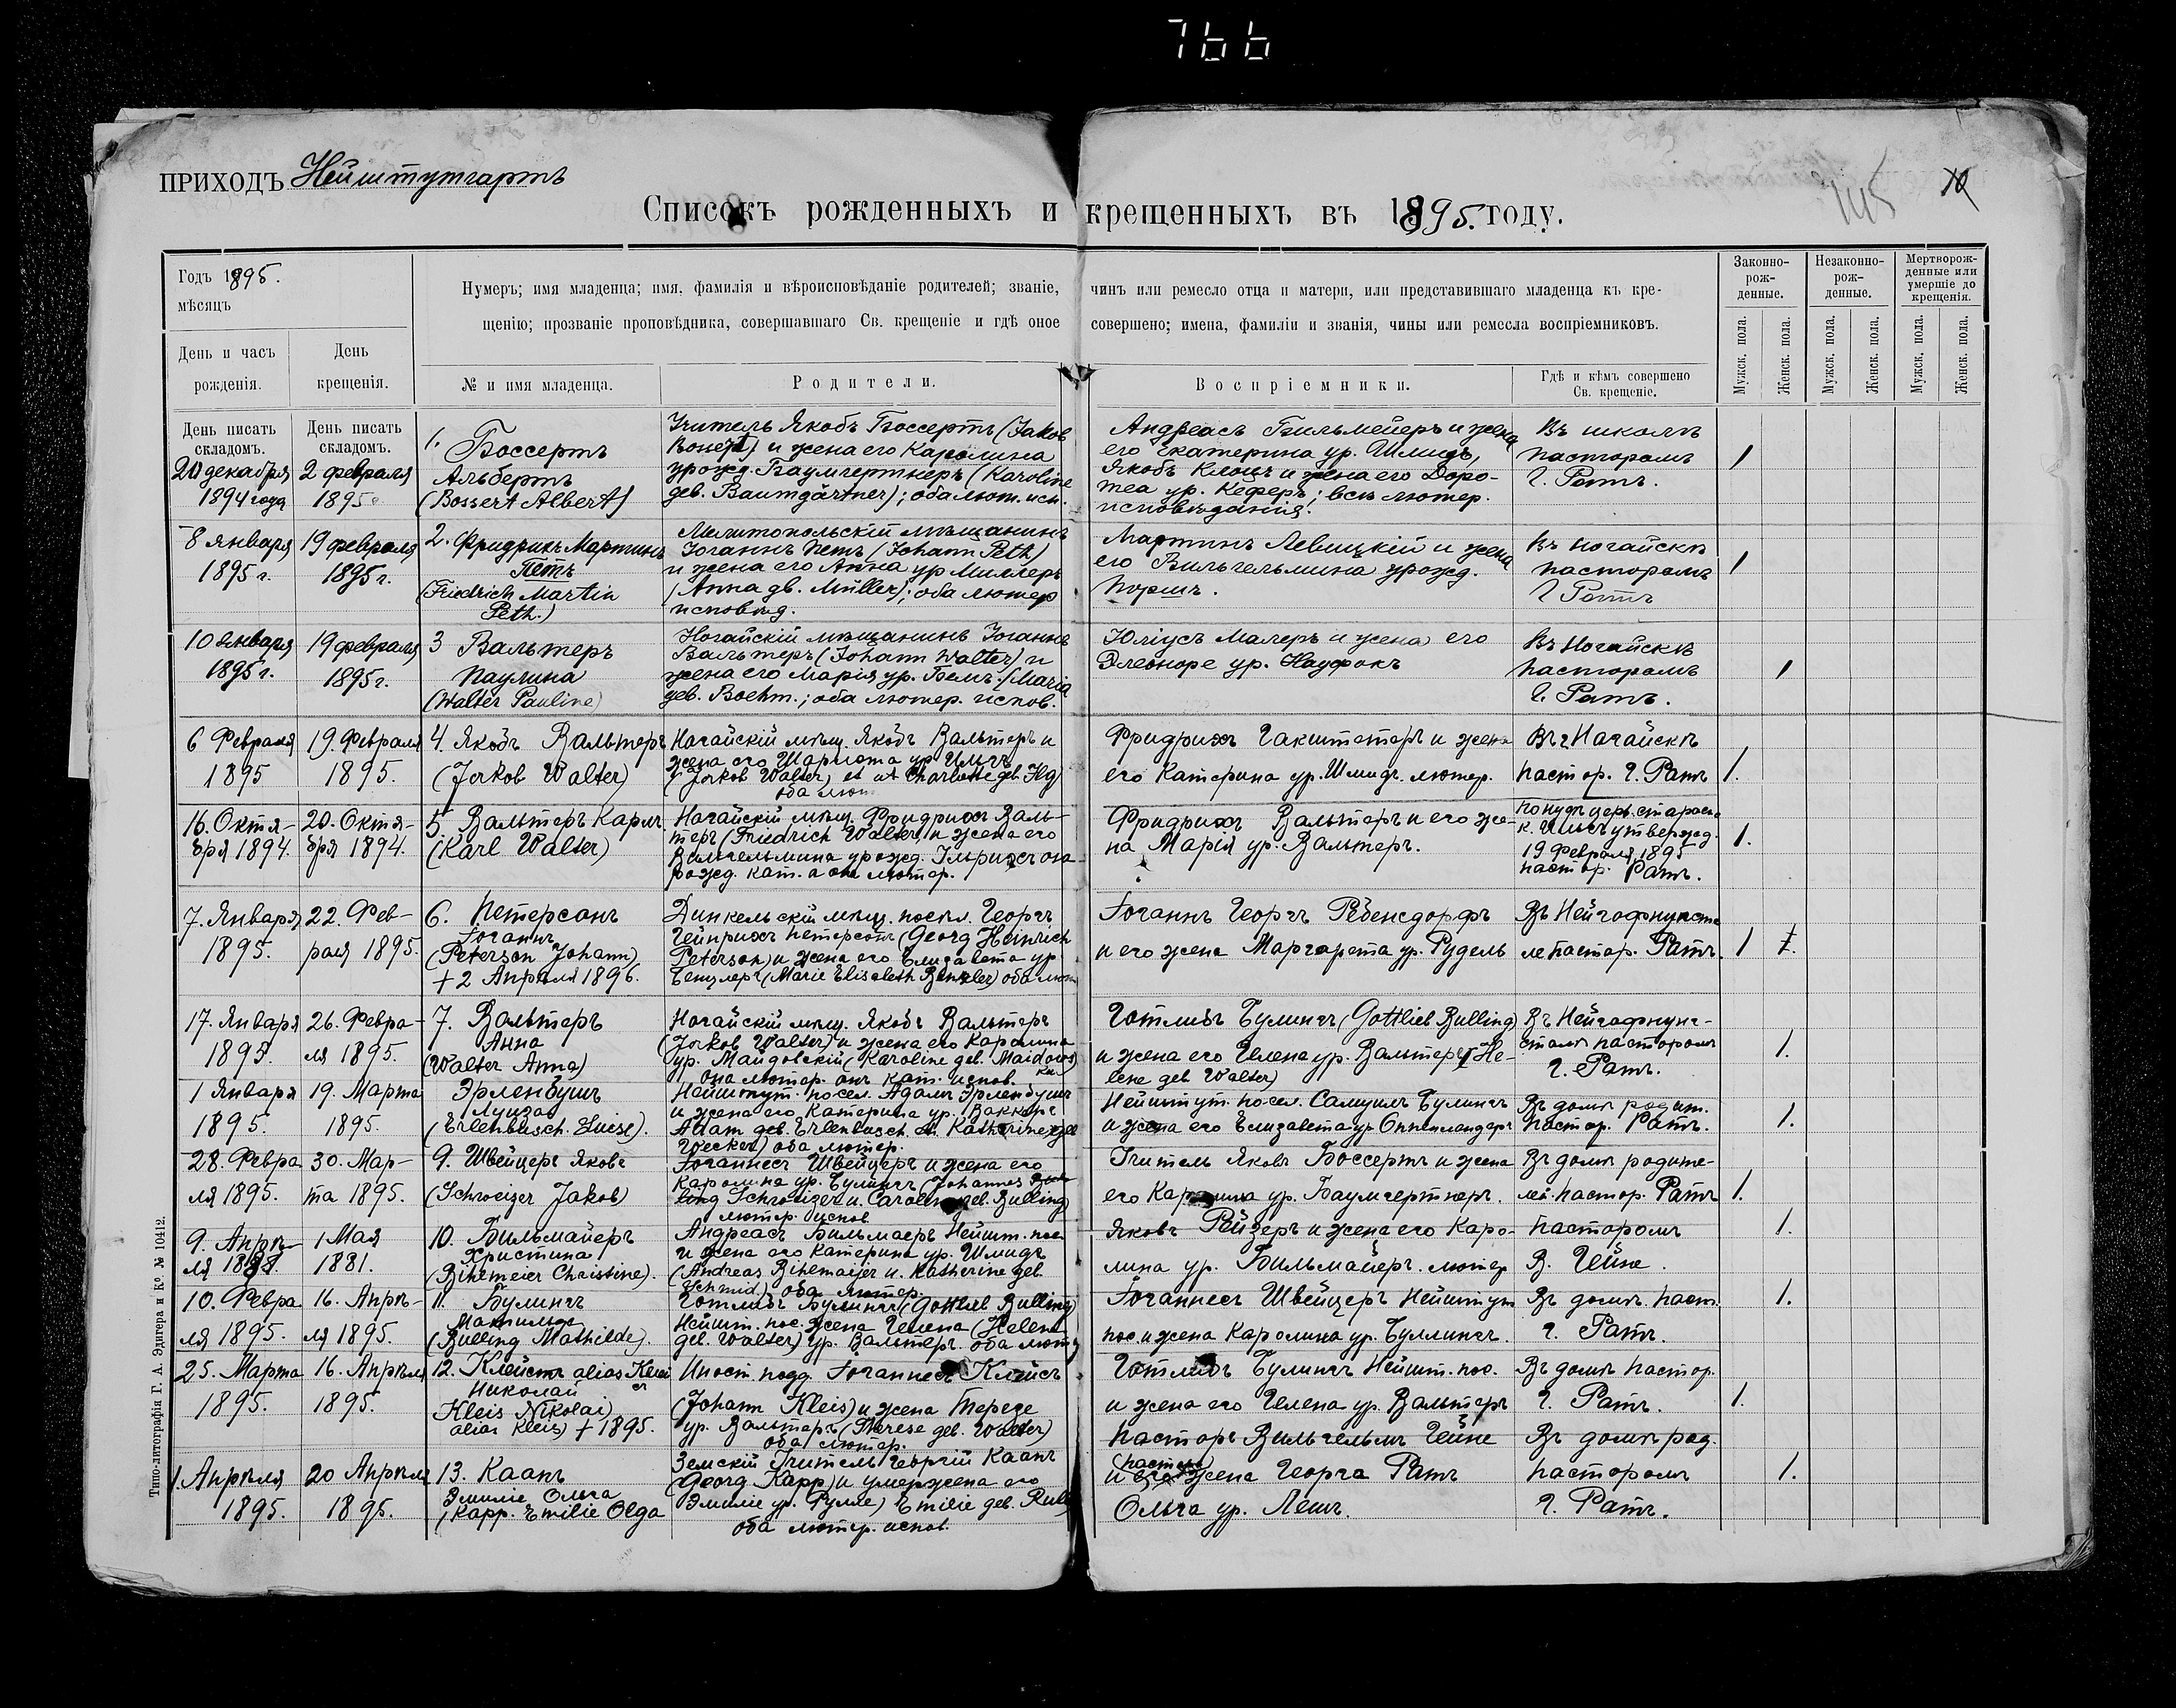 766
ПРИХОДЪ Нейштутгартъ
145
10
Списокъ рожденныхъ и крещенныхъ въ 1895. году.
Годъ 1895.
мѣсяцъ
Нумеръ; имя младенца; имя, фамилія и вѣроисповѣданіе родителей; званіе, чинъ или ремесло отца и матери, или представившаго младенца къ кре-
щенію; прозваніе проповѣдника, совершавшаго Св. крещеніе и гдѣ оное совершено; имена, фамиліи и званія, чины или ремесла воспріемниковъ.
Законно-
рож-
денные.
Незаконно-
рож-
денные.
Мертворож-
денные или
умершіе до
крещенія.
День и часъ
рожденія.
День
крещенія.
№ и имя младенца.
Родители.
Воспріемники.
Гдѣ и кѣмъ совершено
Св. крещеніе.
Мужск. пола.
Женск. пола.
Мужск. пола.
Женск. пола.
Мужск. пола.
Женск. пола.
День писать
складомъ.
День писать
складомъ.
20 декабря
1894 года
2 февраля
1895
1. Боссертъ
Альбертъ
(Bossert Albert)
Учитель Якобъ Боссертъ (Jakob
Bossert) и жена его Каролина
урожд. Баумгертнеръ (Karoline
geb. Baumgärtner); оба лют. исп.
Андреасъ Бильмейеръ и жена
его Екатерина ур. Шмидъ,
Якобъ Клоцъ и жена его Доро-
теа ур. Кеферъ; всѣ лютер.
исповѣданія.
Въ школѣ
пасторомъ
Г. Ратъ.
1
8 января
1895 г.
19 февраля
1895 г.
2. Фридрихъ Мартинъ
Петъ
(Friedrich Martin
Peth.)
Мелитопольскій мѣщанинъ
Іоганнъ Петъ (Johann Peth)
и жена его Анна ур Миллеръ
(Анна gb. Müller); оба лютер
исповѣд.
Мартинъ Левицкій и жена
его Вильгельмина урожд.
Поршъ.
Въ Ногайскѣ
пасторомъ
Г Ратъ
1
10 января
1895 г.
19 февраля
1895 г.
3 Вальтеръ
Паулина
(Walter Pauline)
Ногайскій мѣщанинъ Іоганнъ
Вальтеръ (Johann Walter) и
жена его Марія ур. Бемъ (Maria
geb. Boehm.; оба лютер. испов.
Юліусъ Малеръ и жена его
Элеоноре ур. Науфокъ
Въ Ногайскѣ
пасторомъ
Г. Ратъ.
1
6 Февраля
1895
19. Февраля
1895.
4. Якобъ Вальтеръ
(Jakob Walter)
Ногайскій мѣщ. Якобъ Вальтеръ и
жена его Шарлота ур Ильгъ
(Jakob Walter) et ut Charlotte geb. Ilg)
оба лют
Фридрихъ Гакштетеръ и жена
его Катерина ур. Шмидъ. лютер.
Въ г Ногайскѣ
пастор. Г. Ратъ
1.
16. Октя-
бря 1894.
20. Октя-
бря 1894.
5. Вальтеръ Карлъ
(Karl Walter)
Ногайскій мѣщ. Фридрихъ Валь-
теръ (Friedrich Walter) и жена его
Вильгельмина урожд. Ульрихъ она
рожд. кат. а онъ лютер.
Фридрихъ Вальтеръ и его же-
на Марія ур. Вальтеръ.
По нуждѣ церк. старост.
К. Ильгъ утвержд.
19 Февраля 1895
пастор. Ратъ.
1.
7. Января
1895.
22. Фев-
раля 1895.
6. Петерсонъ
Іоганнъ
(Peterson Johann)
+ 2 Апрѣля 1896.
Динкельскій мѣщ. посел. Георгъ
Гейнрихъ Петерсонъ (Georg Heinrich
Peterson) и жена его Елизавета ур
Бенцлеръ (Marie Elisabeth Benzler) оба лют
Іоганнъ Георгъ Ребенсдорфъ
и его жена Маргарета ур. Рудель
Въ Нейгофнунгста
ле пастор. Ратъ.
1
17. Января
1895.
26. Февра-
ля 1895.
7. Вальтеръ
Анна
(Walter Anna)
Ногайскій мѣщ. Якобъ Вальтеръ
(Jakob Walter) и жена его Каролина
ур. Майдовскій (Karoline geb. Maidows
ki)
она лютер. онъ кат. испов.
Готлибъ Булингъ (Gottlieb Bulling)
и жена его Гелена ур. Вальтеръ (He-
lene geb Walter)
Въ Нейгофнунг-
сталѣ пасторомъ
Г. Ратъ.
1.
1 Января
1895.
19. Марта
1895.
Эрленбушъ
Луиза
(Erlenbusch. Luise).
Нейштут. посел. Адамъ Эрленбушъ
и жена его Катерина ур. Веккеръ
Adam geb. Erlenbusch u. Katherine geb
Wecker) оба лютер.
Нейштут. посел. Самуилъ Булингъ
и жена его Елизавета ур Оппенлендеръ
Въ домѣ родит.
пастор. Ратъ.
1.
28. Февра
ля 1895.
30. Мар-
та 1895.
9. Швейцеръ Яковъ
(Schweizer Jakob)
Іоганнесъ Швейцеръ и жена его
Каролина ур. Булингъ (Johannes
Schweizer u. Caroline geb. Bulling)
лютер. испов
Учитель Яковъ Боссертъ и жена
его Каролина ур. Баумгертнеръ.
Въ домѣ родите-
лей. пастор. Ратъ
1.
9. Апрѣ-
ля
1 Мая
1881.
10. Бильмайеръ
Христина
(Bihlmeier Christine).
Андреасъ Бильмаеръ Нейшт. пос.
и жена его Катерина ур. Шмидъ
(Andreas Bihlmaijer u. Katherine geb
Schmid.) оба лютер.
Яковъ Рейзеръ и жена его Каро-
лина ур. Бильмайеръ. лютер
Пасторомъ
В. Гейне.
1.
10. Февра
ля 1895.
16. Апрѣ-
ля 1895.
11. Булингъ
Матильде
(Bulling Mathilde).
Готлибъ Булингъ (Gottlieb Bulling)
Нейшт. пос. жена Гелена (Helena
geb. Walter) ур. Вальтеръ. оба лютер
Іоганнесъ Швейцеръ Нейштут
пос. и жена Каролина ур. Буллингъ.
Въ домѣ. паст.
Г. Ратъ.
1.
25. Марта
1895.
16. Апрѣля
1895.
12. Клейстъ alias Клей
съ
Николай
Kleis Nikolai)
alias Kleis) + 1895.
Иност. подд. Іоганнесъ Клейсъ
(Johann Kleis) и жена Терезе
ур. Вальтеръ (Therese geb. Walter)
оба лютер.
Готлибъ Булингъ Нейшт. пос.
и жена его Гелена ур. Вальтеръ
Въ домѣ пастор.
Г. Ратъ.
1.
1. Апрѣля
1895.
20 Апрѣля
1895.
13. Каапъ
Эмиліе Ольга
(Kapp. Emilie Olga
Земскій Учитель Георгій Каапъ
(Georg Kapp) и умер. жена его
Эмиліе ур. Рулле) Emilie geb. Rull
оба лютер. испов.
Пасторъ Вильгельмъ Гейне
и жена пастора Георга Ратъ
Ольга ур. Лешъ.
Въ домѣ род.
пасторомъ
Г. Ратъ.
1.
Типо-литографія Г. А. Эдигера и Ко. № 10412.